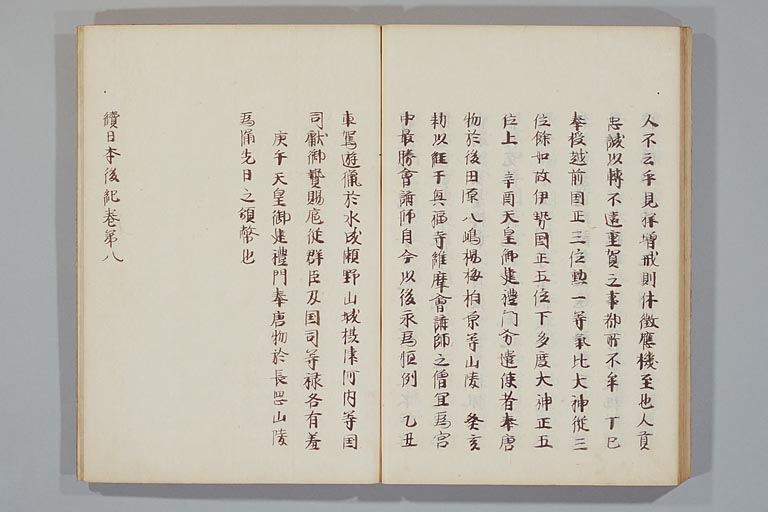 人不云乎見祥増戒則休徴應機至也人貢
忠誠以轉不遠重賀之事都所不牟丁巳
奉授越前国正三位勲一等氣比大神従三
位餘如故伊勢國正五位下多度大神正五
位上辛酉天皇御建禮門分遣使者奉唐
物於後田原八嶋楊梅柏原等山陵癸亥
勅以経于興福寺維摩會講師之僧宜爲宮
中最勝會講師自今以後永爲恒例乙丑
車駕遊獵於水成瀬野山城摂津河内等国
司獻御贄賜扈従群臣及国司等禄各有差
庚午天皇御建禮門奉唐物於長岡山陵
爲漏先日之頒幣也
續日本後紀巻第八